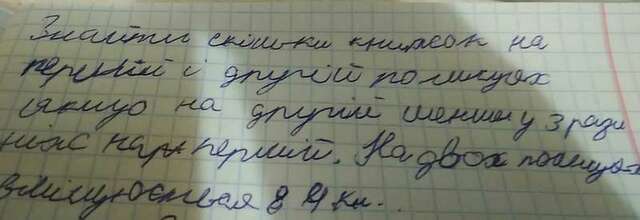 Знайти скільки книжок на
першій і другій полицях
якщо на другій меншу 3 рази
ніж на першій. На двох полицях
вміщюється 84 кн.